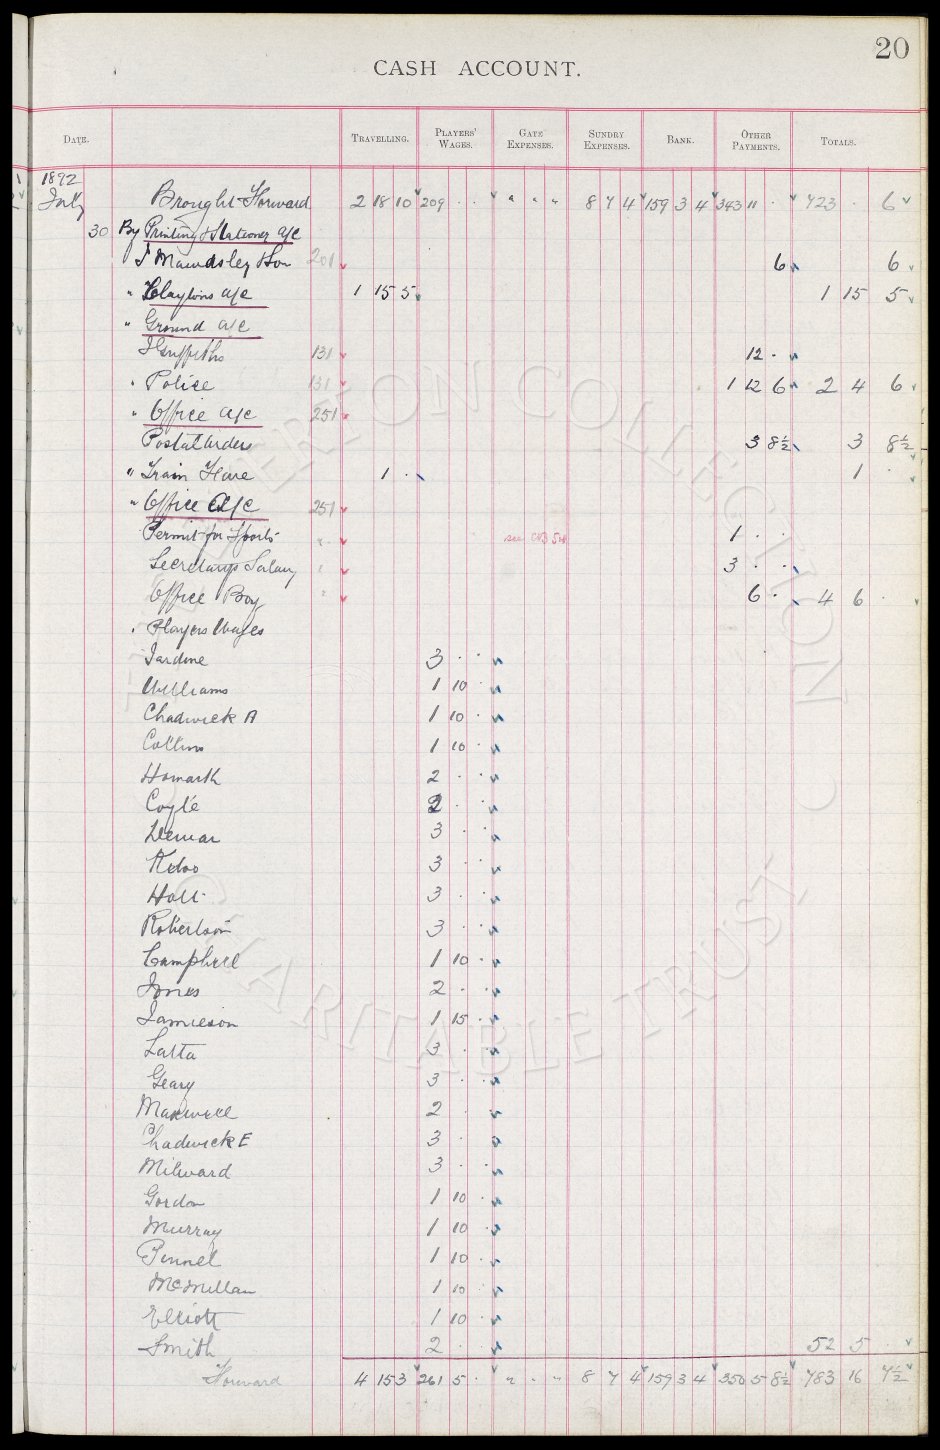 20
CASH ACCOUNT.
DATE. TRAVELLING. PLAYERS' WAGES. GATE EXPENSES. SUNDRY EXPENSES. BANK. OTHER PAYMENTS. TOTALS.
1892
July Brought Forward 2 18 10 209 . . " " " 8 7 4 159 3 4 343 11 . 723 . 6
30 By Printing & Stationery a/c
J Mawdsley & Son 201 6 6
" Claytons a/c 1 15 5 1 15 5
" Ground a/c
J Griffiths 131 12 .
" Police 131 1 12 6 2 4 6
" Office a/c 251
Postal Orders 3 8½ 3 8½
" Train Fare 1 . 1 .
" Office a/c 251
Permit for Sports " see CB 54 1 . .
Secretarys Salary " 3 . .
Office Boy " 6 . 4 6 .
" Players Wages
Jardine 3 . .
Williams 1 10 .
Chadwick A 1 10 .
Collins 1 10 .
Howarth 2 . .
Coyle 2 . .
Dewar 3 . .
Kelso 3 . .
Holt 3 . .
Robertson 3 . .
Campbell 1 10 .
Jones 2 . .
Jamieson 1 15 .
Latta 3 . .
Geary 3 . .
Maxwell 2 . .
Chadwick E 3 . .
Milward 3 . .
Gordon 1 10 .
Murray 1 10 .
Pinnel 1 10 .
McMillan 1 10 .
Elliott 1 10 .
Smith 2 . . 52 5 .
Forward 4 15 3 261 5 . " " " 8 7 4 159 3 4 350 5 8½ 783 16 7½
EVERTON COLLECTION
CHARITABLE TRUST